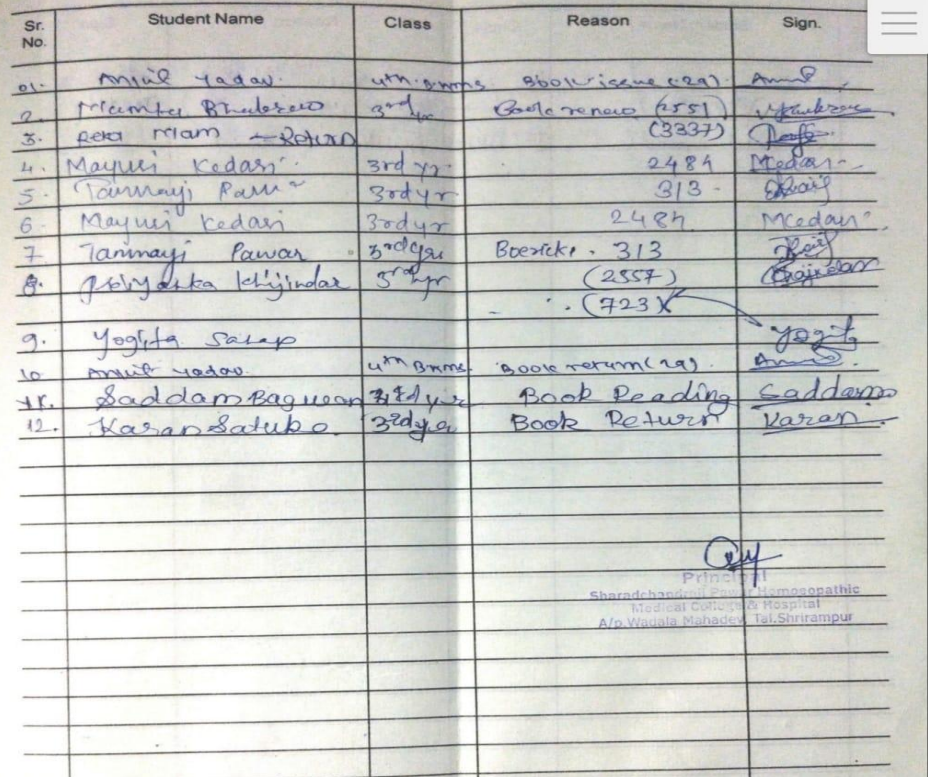 Sr. No. Student Name Class Reason Sign.
01. Ankit Yadav. 4th BHMS. Book issue (29)
2. Mamta 3rd yr Book renew (2551)
3. Mam ← Return (3337)
4. Mayuri Kedari 3rd yr. 2484 MKedari
5. Tanmayi 3rd yr. 313
6. Mayuri Kedari 3rd yr 2484 MKedari
7 Tanmayi Pawar 3rd yr 313
8. Priyanka Khijindar 3rd yr (2557)
(723)
9. Yogita Yogita
10 Ankit Yadav. 4th BHMS. Book return (29)
11. Saddam Bagwan 3rd yr Book Reading Saddam
12. Karan 3rd yr Book Return Karan
Principal
Sharadchandraji Pawar Homoeopathic
Medical College & Hospital
A/p.Wadala Mahadev, Tal.Shrirampur